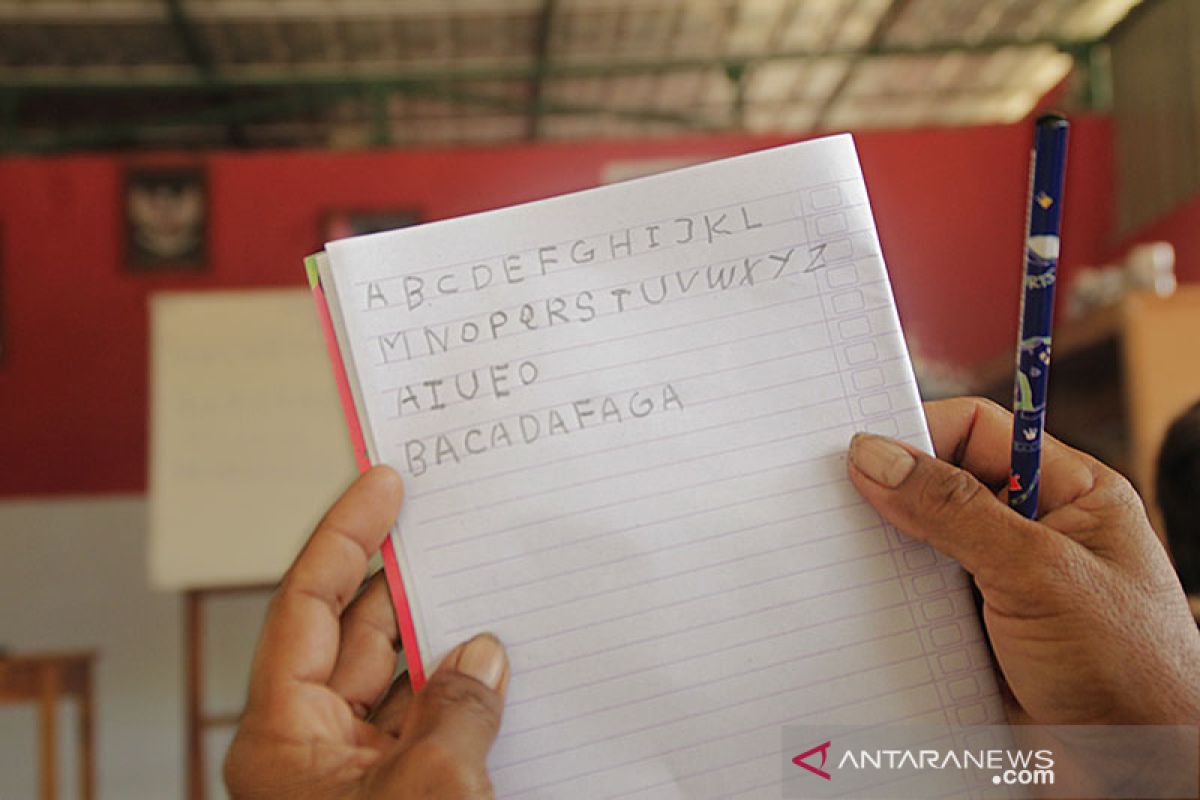 A B C D E F G H I J K L
M N O P Q R S T U V W X Y Z
A I U E O
B A C A D A F A G A
ANTARANEWS
.com